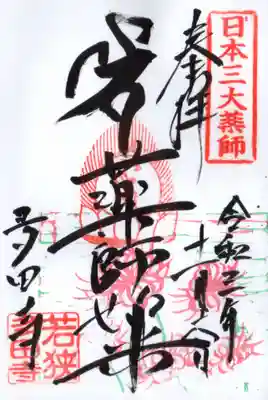 日本三大薬師
奉拝
令和三年
薬師如来
多田寺
若狭
多田寺